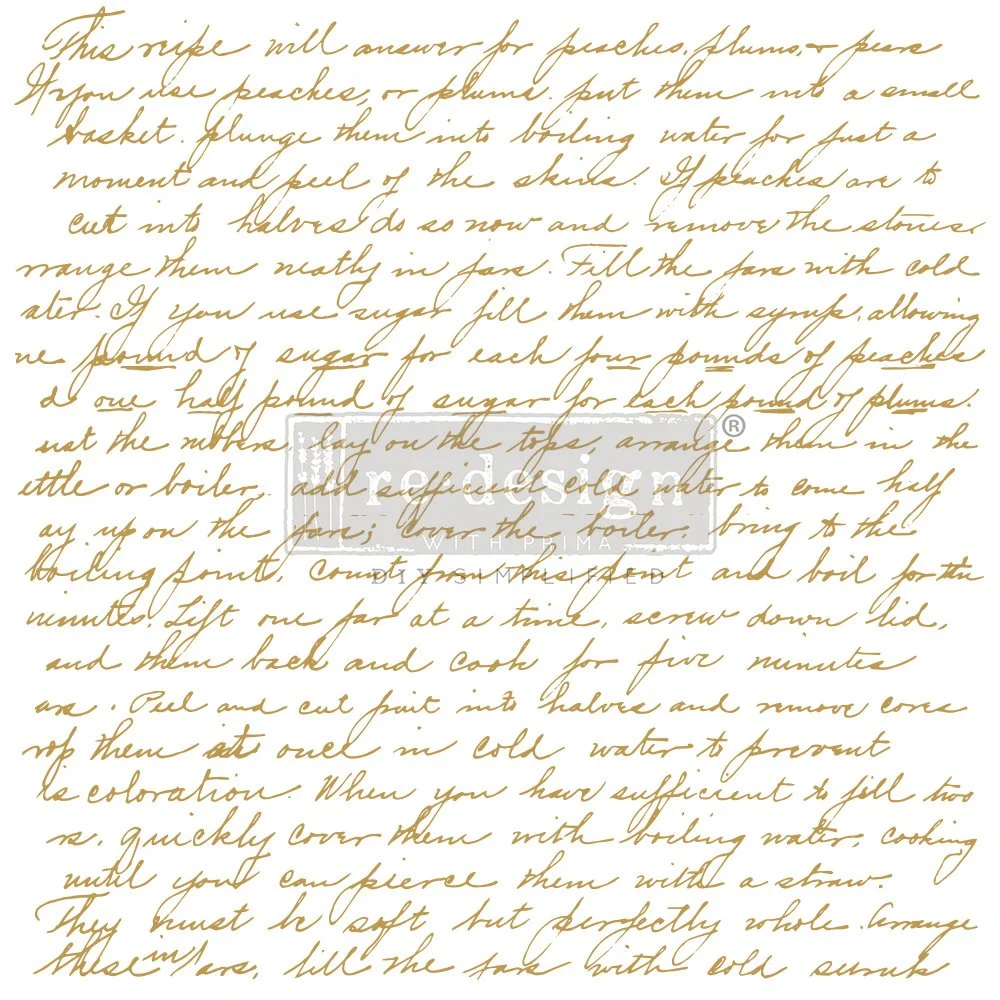 This recipe will answer for peaches, plums, + pears
If you use peaches, or plums. put them into a small
basket. plunge them into boiling water for just a
moment and peel of the skins. If peaches are to
cut into halves do so now and remove the stones.
rrange them neatly in jars. Fill the jars with cold
ater. If you use sugar fill them with syrup, allowing
ne pound of sugar for each four pounds of peaches
d one half pound of sugar for each pound of plums.
ust the rubbers, lay on the tops, arrange them in the
ettle or boiler, add sufficient cold water to come half
ay up on the jars; cover the boiler, bring to the
boiling point, count from this point and boil for ten
minutes. Lift one jar at a time, screw down lid,
and them back and cook for five minutes
ars. Peel and cut fruit into halves and remove cores
rop them at once in cold water to prevent
is coloration. When you have sufficient to fill two
rs, quickly cover them with boiling water, cooking
until you can pierce them with a straw.
They must be soft but perfectly whole. Arrange
these in jars, fill the jars with cold
re·design®
WITH PRIMA
DIY SIMPLIFIED